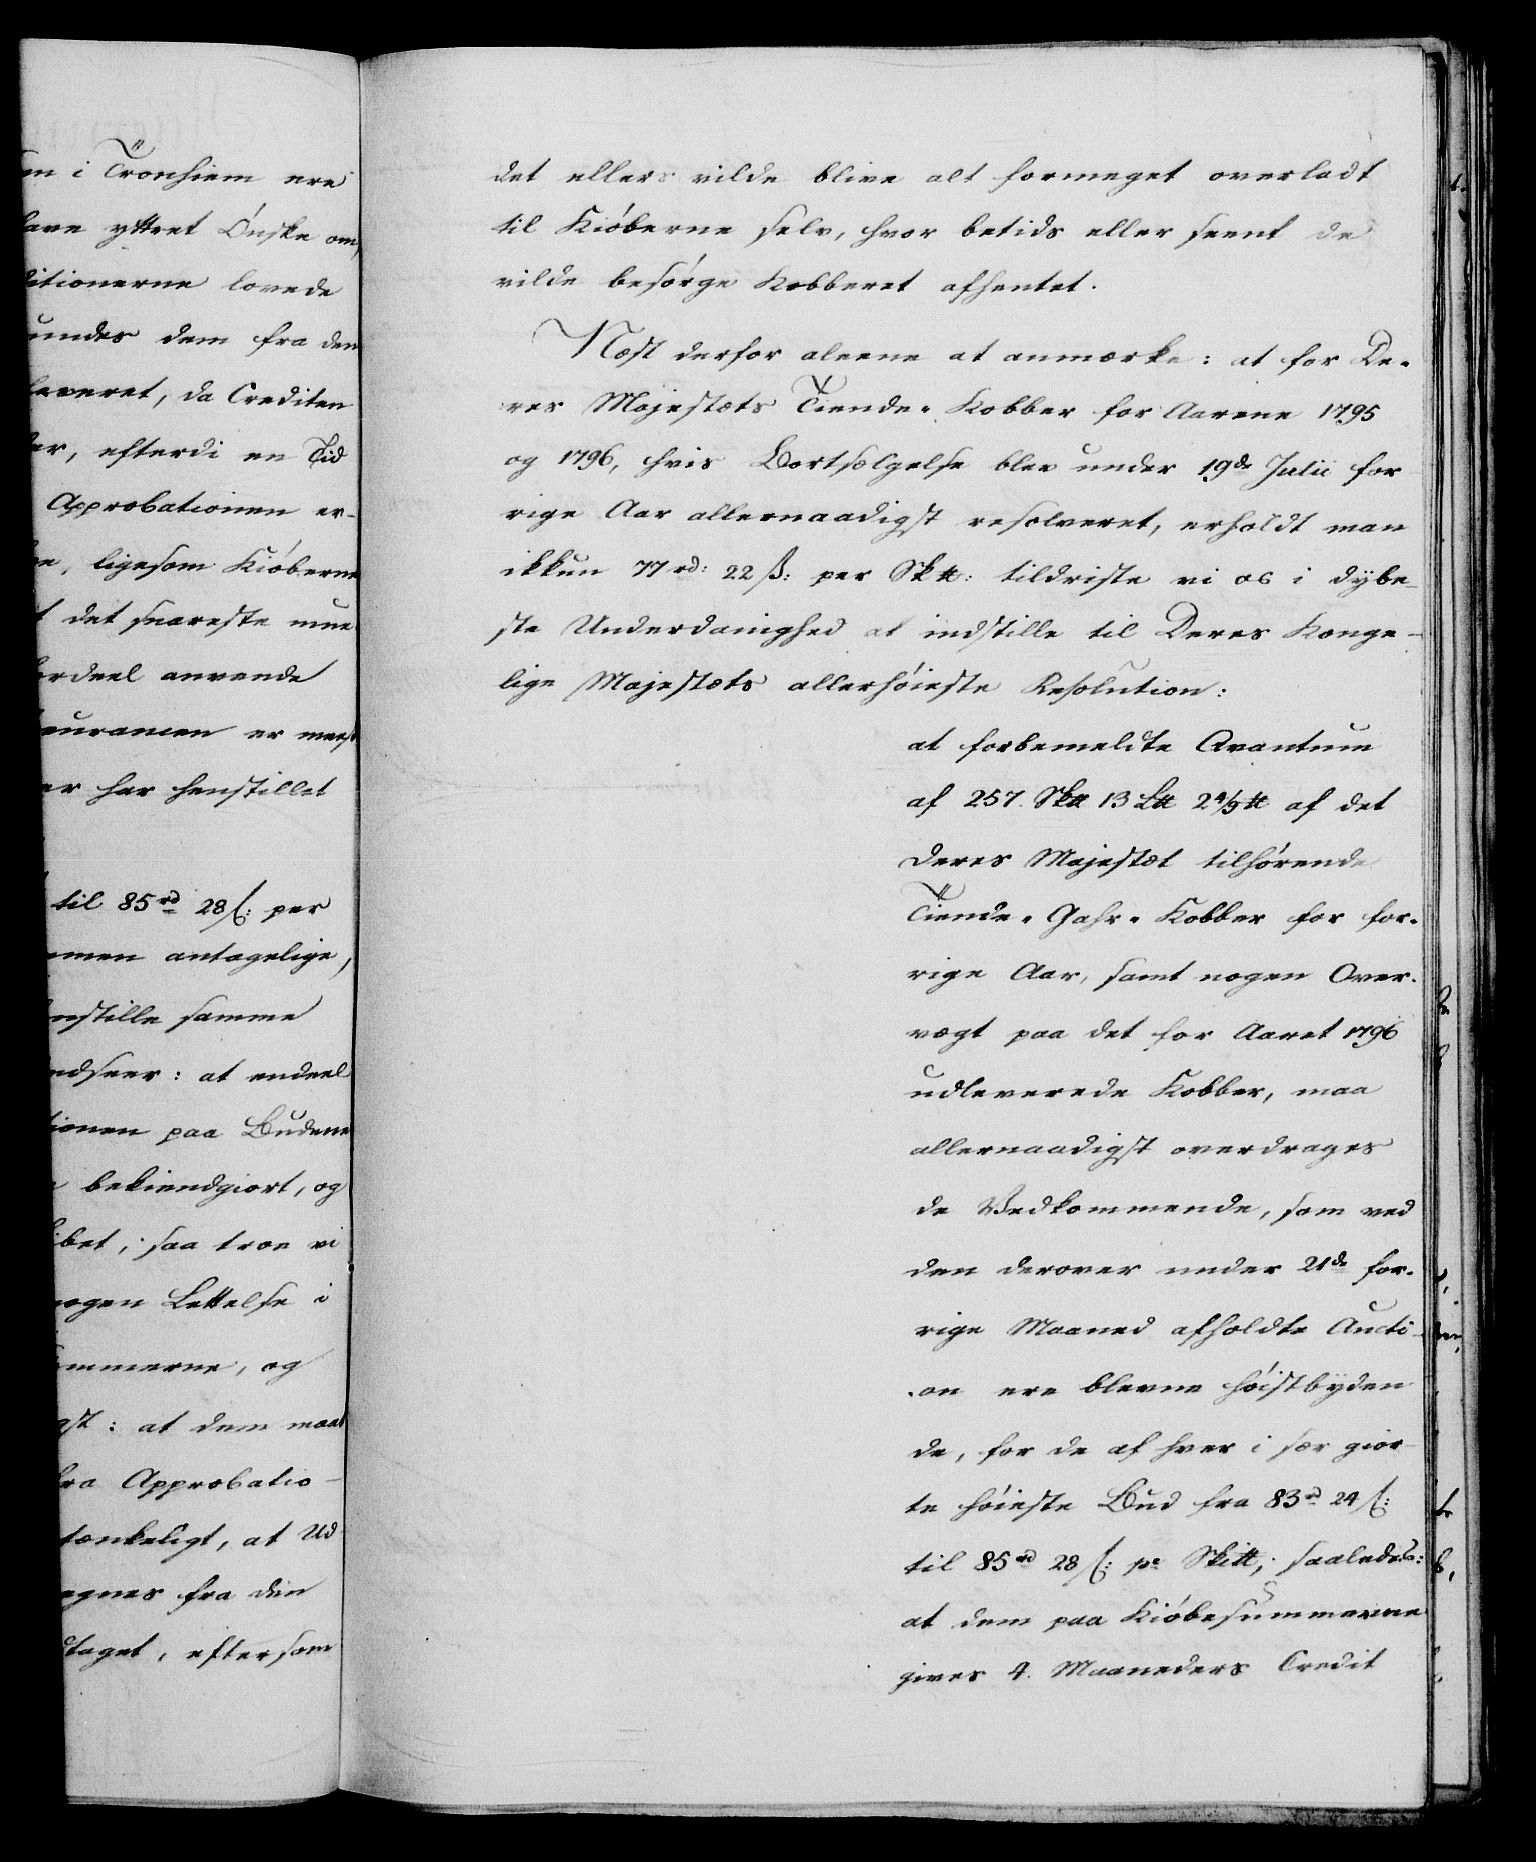 en i Tronhiem ere
have yttret Ønske om,
ditionerne lovede
undes dem fra den
laveret, da Crediten
der, efterdi en Tid
Approbationen er-
ne, ligesom Kiøberne
t det snareste mue
ordeel anvende
eurancen er meest
er har henstillet
til 85rd 28 ß: per
men antagelige,
nstille samme
ndseer: at endeel
tionen paa Budene
bekiendgiort, og
ibet, saa troe vi
nogen Lettelse i
ummerne, og
gst: at dem maae
fra Approbatio-
tænkeligt, at Ud
egnes fra den
dtaget, eftersom
det ellers vilde blive alt formeget overladt
til Kiøberne selv, hvor betids eller seent de
vilde besørge Kobberet afhentet.
Næst derfor aleene at anmærke: at for De-
res Majestæts Tiende-Kobber for Aarene 1795
og 1796, hvis Bortsælgelse blev under 19de Julii for
rige Aar allernaadigst resolveret, erholdt man
ikkun 77rd: 22 ß: per Sk℔: tildriste vi os i dybe-
ste Underdanighed at indstille til Deres Konge-
lige Majestæts allerhøieste Resolution:
at forbemeldte Qvantum
af 257. Sk℔ 13 L℔ 2 4/9 ℔ af det
Deres Majestæt tilhørende
Tiende-Gahr-Kobber for for-
rige Aar, samt nogen Over-
vægt paa det for Aaret 1796
udleverede Kobber, maa
allernaadigst overdrages
de Vedkommende, som ved
den derover under 21de for-
rige Maaned afholdte Aucti-
on ere blevne høistbyden
de, for de af hver i sær gior-
te høieste Bud fra 83rd 24 ß:
til 85rd 28 ß: pr Sk℔; saaledes:
at dem paa Kiøbesummerne
gives 4. Maaneders Credit